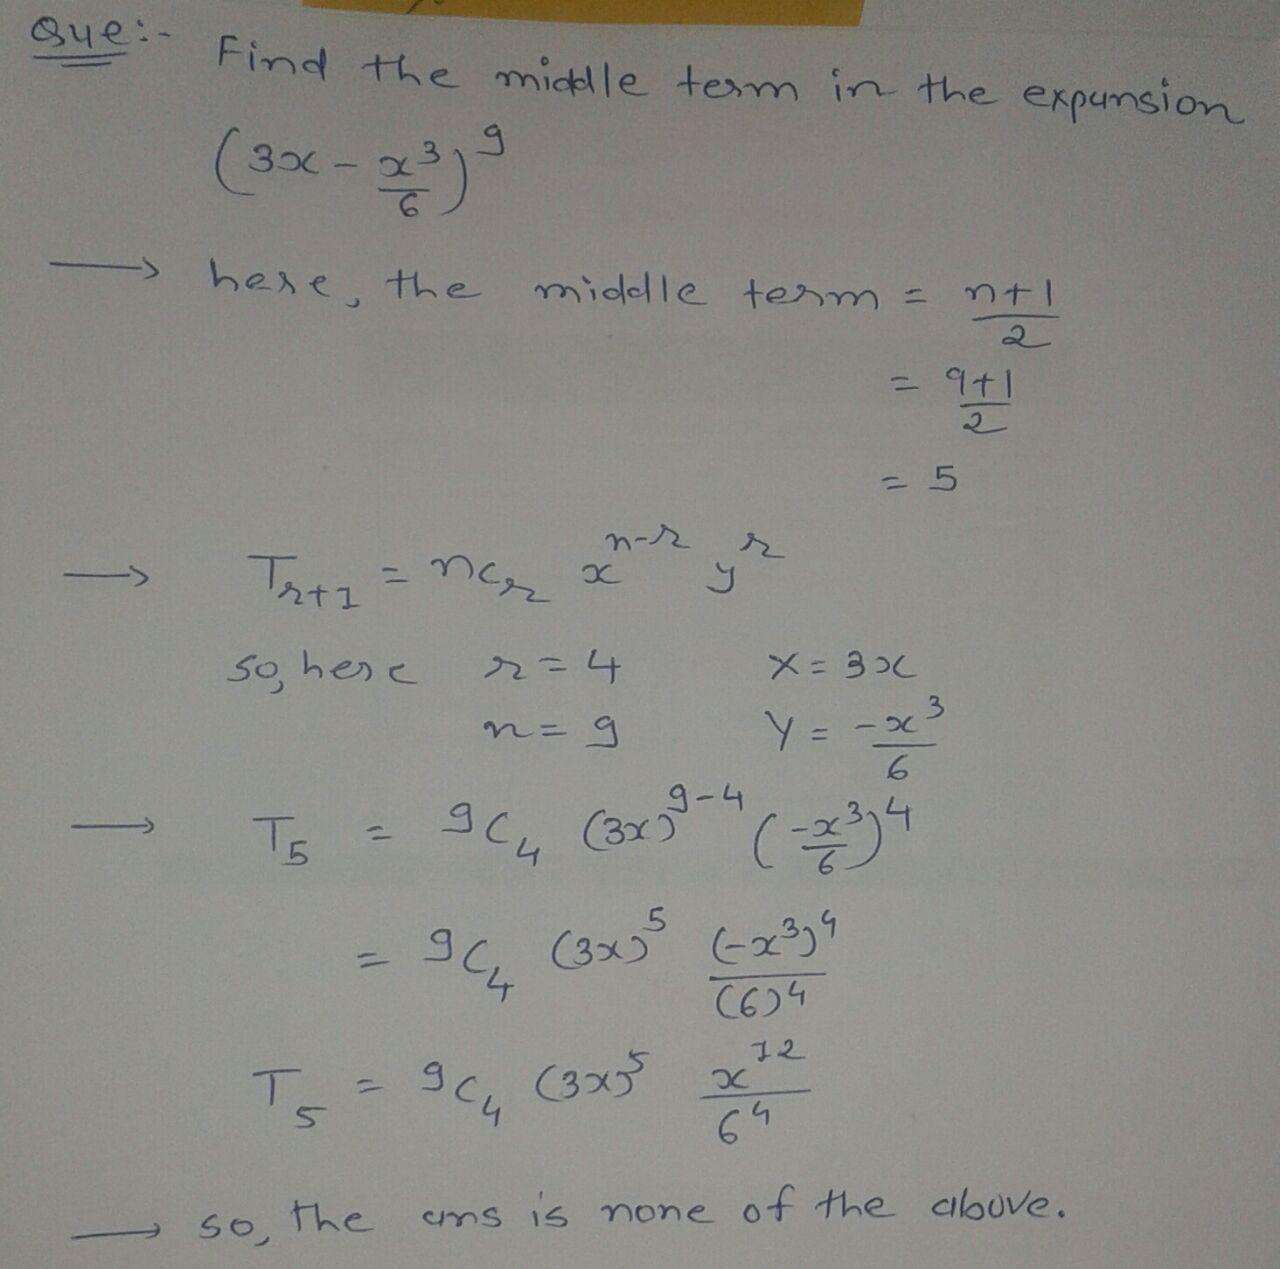 Que:- Find the middle term in the expansion
(3x - x³/6)⁹
→ here, the middle term = n+1/2
= 9+1/2
= 5
→ Tr+1 = ncr x^n-r y^r
so, here r = 4 X = 3x
n = 9 Y = -x³/6
→ T5 = 9C4 (3x)^9-4 (-x³/6)⁴
= 9C4 (3x)⁵ (-x³)⁴/(6)⁴
T5 = 9C4 (3x)⁵ x¹²/6⁴
→ so, the ans is none of the above.